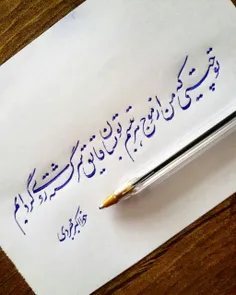 تو چیستی که من از موج هر تبسم تو
بسان قایق سرگشته روی گردابم